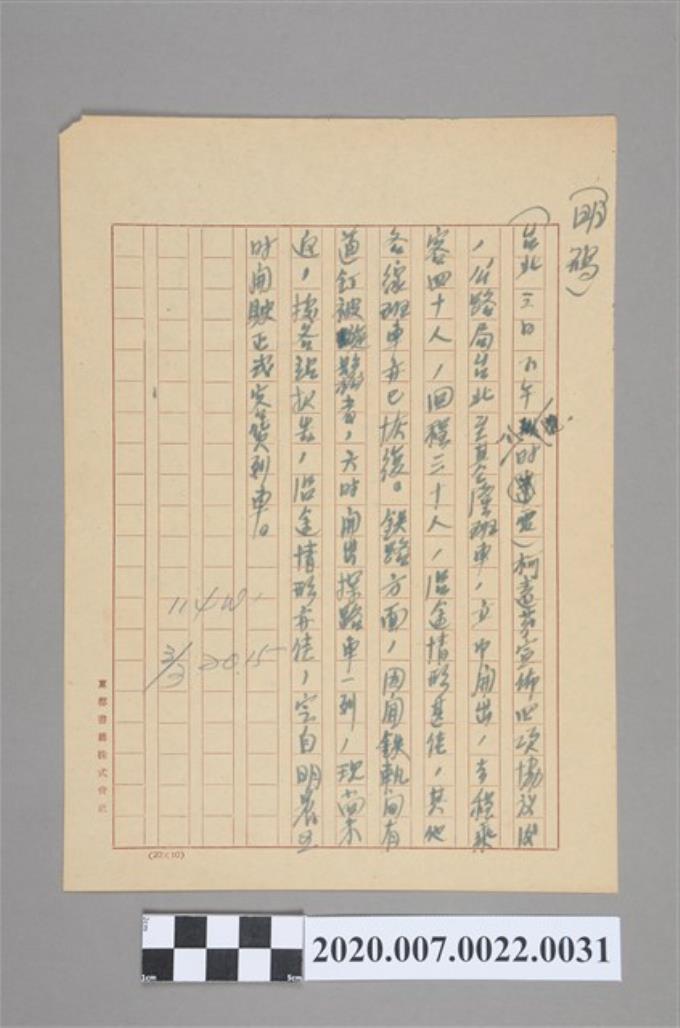 (明碼)
(台北三日下午八時電)柯遠芬宣佈四項協議後
,公路局台北至基隆班車,立即開出,去程乘
客四十人,回程三十人,沿途情形甚佳,其他
各線班車亦已恢復。鉄路方面,因面鉄軌間有
道釘被 者,六時開出探路車一列,現尚未
返,據各站報告,沿途情形亦佳,定自明晨五
時開駛正式客貨列車。
114W.
3/3 20.15
東都書籍株式會社
(20×10)
2cm
1cm
5cm
2020.007.0022.0031